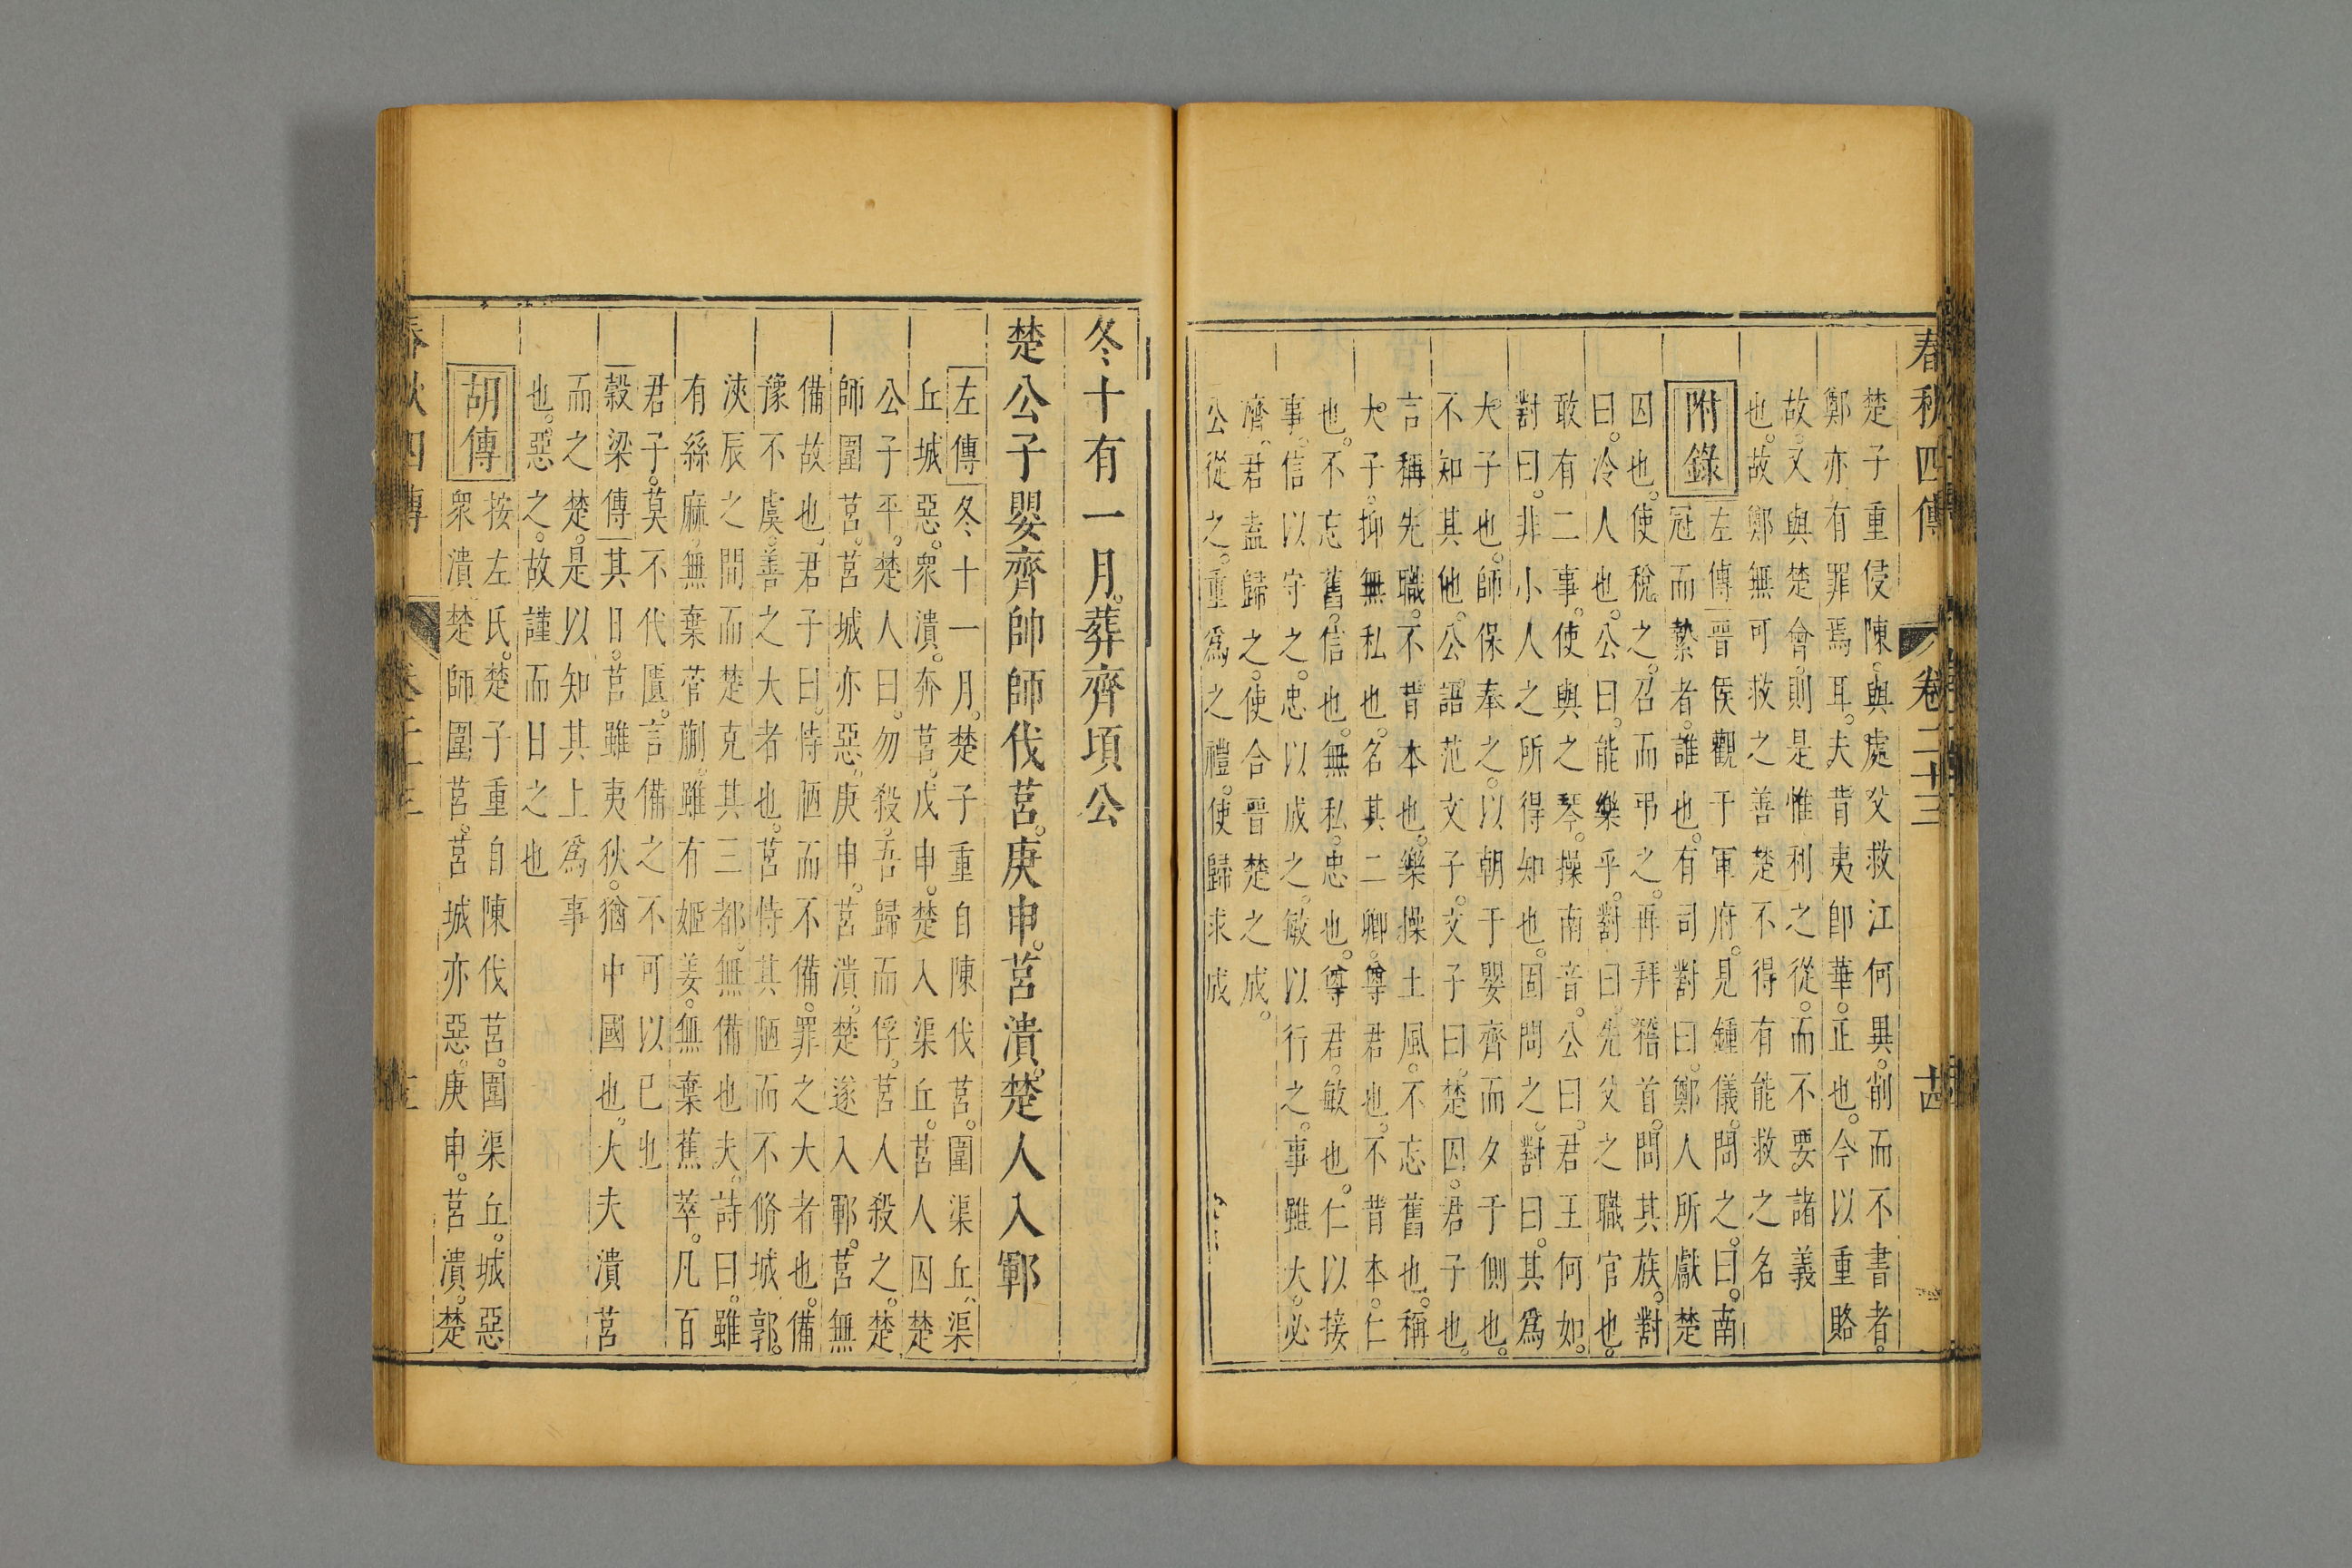 春秋四傳 卷二十三 十四
楚子重侵陳與處父救江何異。削而不書者。
鄭亦有罪焉耳。夫背夷卽華。正也。今以重賂
故又與楚會。則是惟利之從。而不要諸義
也。故鄭無可救之善楚不得有能救之名
附錄
左傳晉侯觀于軍府。見鍾儀。問之。曰。南
冠而縶者。誰也。有司對曰。鄭人所獻楚
囚也。使稅之。召而弔之。再拜稽首。問其族。對
曰。泠人也。公曰。能樂乎。對曰。先父之職官也。
敢有二事。使與之琴。操南音。公曰。君王何如。
對曰。非小人之所得知也。固問之。對曰。其爲
大子也。師保奉之。以朝于嬰齊而夕于側也。
不知其他。公語范文子。文子曰。楚囚。君子也。
言稱先職。不背本也。樂操土風。不忘舊也。稱
大子。抑無私也。名其二卿。尊君也。不背本。仁
也。不忘舊。信也。無私。忠也。尊君。敏也。仁以接
事。信以守之。忠以成之。敏以行之。事雖大。必
濟。君盍歸之。使合晉楚之成。
公從之。重爲之禮。使歸求成
冬十有一月。葬齊項公
楚公子嬰齊帥師伐莒。庚申。莒潰。楚人入鄆
左傳冬十一月。楚子重自陳伐莒。圍渠丘。渠
丘城惡。衆潰。奔莒。戊申。楚入渠丘。莒人囚楚
公子平。楚人曰。勿殺。吾歸而俘。莒人殺之。楚
師圍莒。莒城亦惡。庚申。莒潰。楚遂入鄆。莒無
備故也。君子曰。恃陋而不備。罪之大者也。備
豫不虞。善之大者也。莒恃其陋而不脩城郭。
浹辰之間而楚克其三都。無備也夫。詩曰。雖
有絲麻。無棄菅蒯。雖有姬姜。無棄蕉萃。凡百
君子。莫不代匱。言備之不可以已也
穀梁傳其日。莒雖夷狄。猶中國也。大夫潰莒
而之楚。是以知其上爲事
也。惡之。故謹而日之也
胡傳
按左氏。楚子重自陳伐莒。圍渠丘。城惡
衆潰楚師圍莒。莒城亦惡。庚申。莒潰。楚